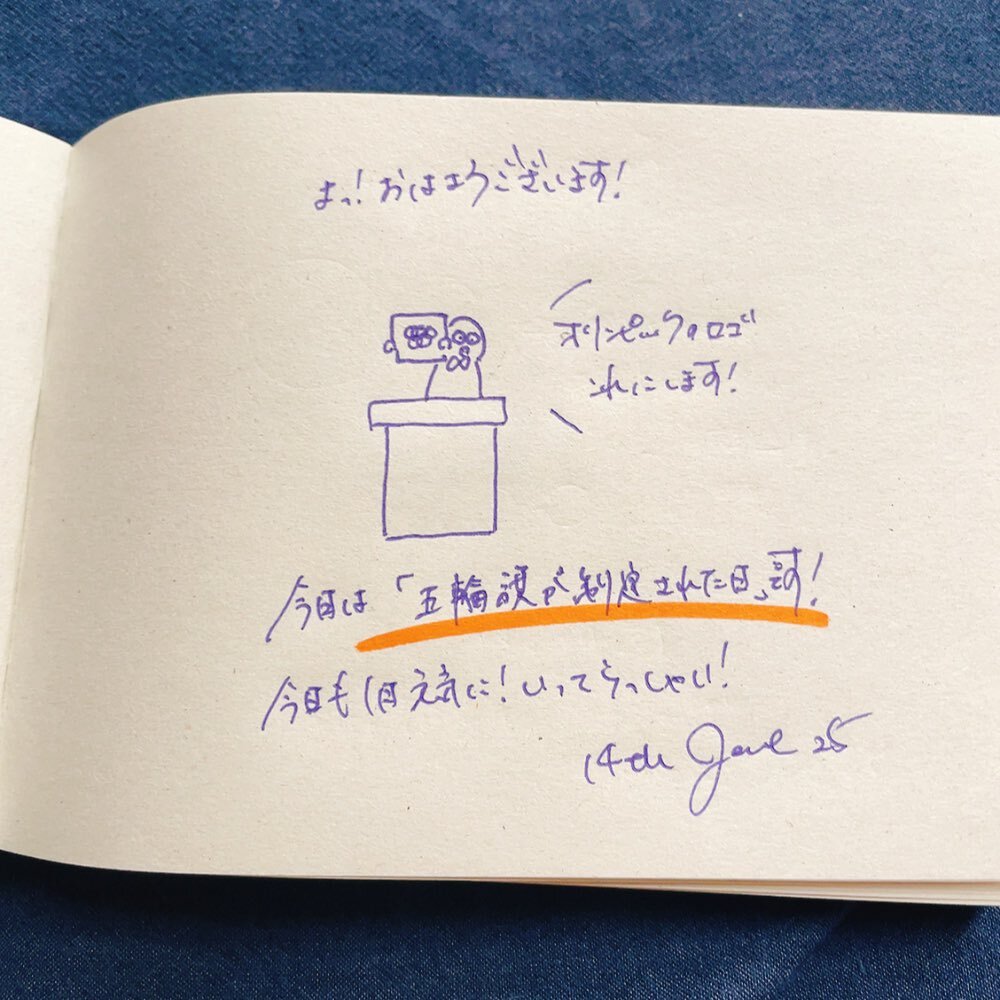 よっ!おはようございます!
オリンピックのロゴ
これにします!
今日は「五輪旗が制定された日」です!
今日も1日元気に!いってらっしゃい!
14th June 25